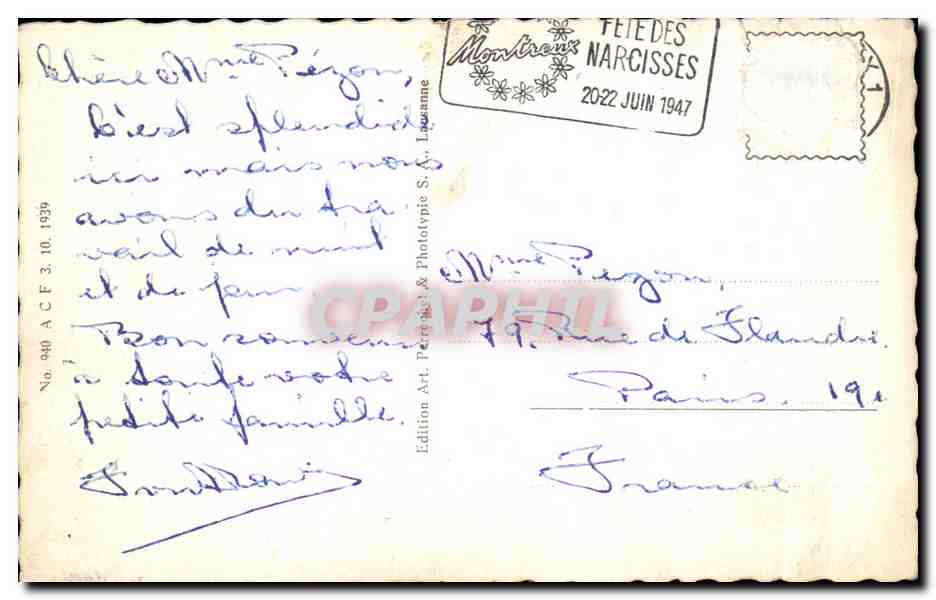 Chère Mme Pézon,
C'est splendide
ici mais nous
avons du tra-
vail de nuit
et de jour
Bon souvenir
à toute votre
petite famille.
No. 940 A C F 3. 10. 1939
Edition Art. Perrochet & Phototypie S. A., Lausanne
Montreux
FÊTE DES
NARCISSES
20-22 JUIN 1947
1
Mme Pézon,
79, Rue de Flandre.
Paris. 19e
France
CPAPHIL